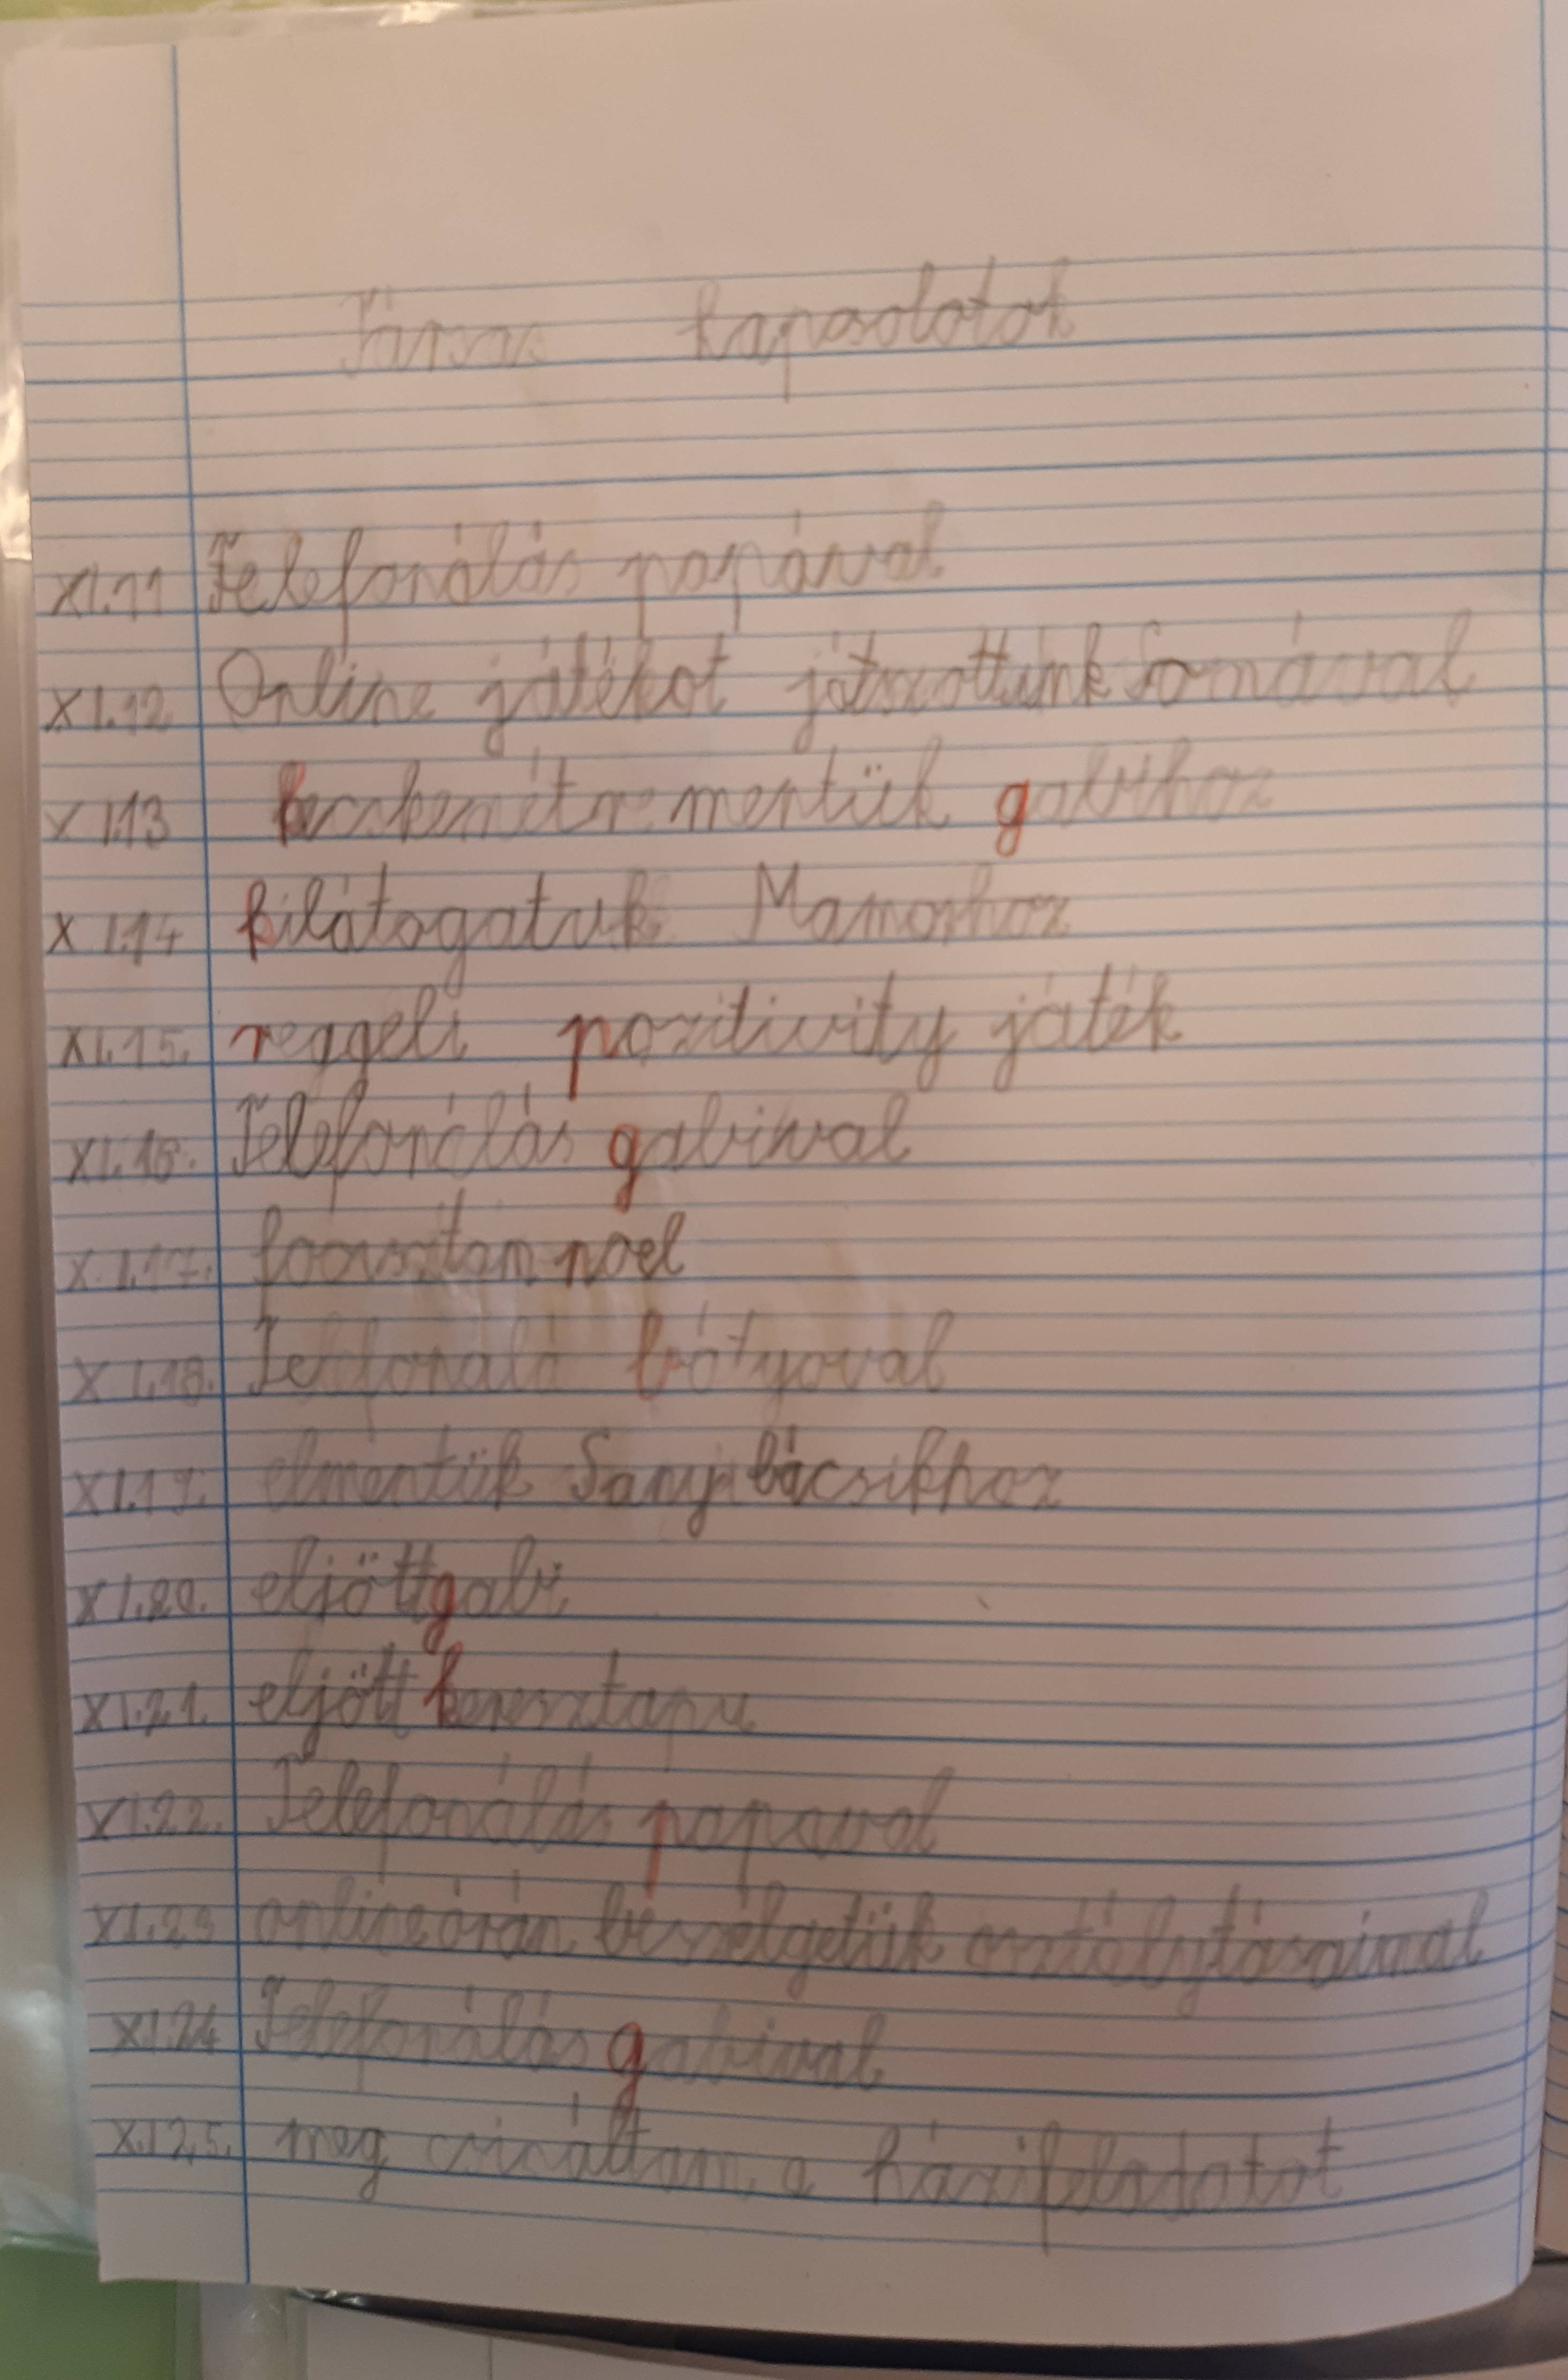 Társas kapcsolatok
XI.11 Telefonálás papával
XI.12 Online játékot játszottunk Somával
XI.13 mentük gabihoz
XI.14 kilátogatuk Mamához
XI.15. reggeli pozitivity játék
XI.16. Telefonálás gabival
XI.17. noel
XI.18. bátyoval
XI.19. elmentük Sanyi bácsikhoz
XI.20. eljött gabi
XI.21. eljött keresztapu
XI.22. Telefonálás papaval
XI.23 online órán beszélgetük osztálytásaimal
XI.24 Telefonálás gabival
XI.25. meg csináltam a házifeladatot